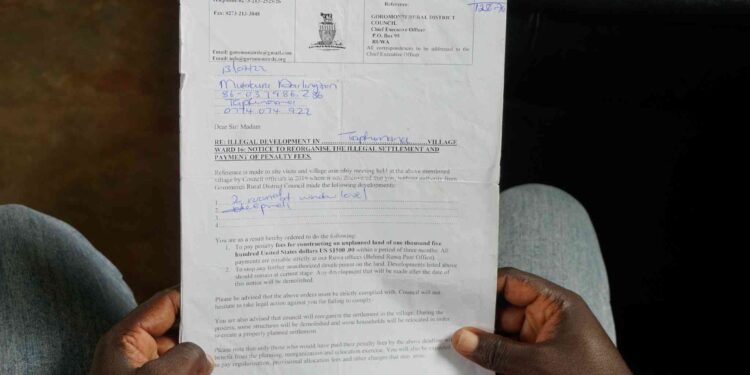 Fax: 0273-213-3848
Email: goromonzirdc@gmail.com
Reference:
GOROMONZI RURAL DISTRICT
COUNCIL
Chief Executive Officer
P.O. Box 95
RUWA
All correspondences to be addressed to the
Chief Executive Officer.
Darlington
0774 074 922
Dear Sir/ Madam
RE: ILLEGAL DEVELOPMENT IN VILLAGE
WARD 16: NOTICE TO REORGANISE THE ILLEGAL SETTLEMENT AND
PAYMENT OF PENALTY FEES.
Reference is made to site visits and village assembly meeting held at the above mentioned
village by Council officials in 2019 where it was discovered that you, without authority from
Goromonzi Rural District Council made the following developments:
1. 2 roomed window level
2. development
3.
4.
You are as a result hereby ordered to do the following:
1. To pay penalty fees for constructing on unplanned land of one thousand five
hundred United States dollars US $1500 .00 within a period of three months. All
payments are payable strictly at our Ruwa offices (Behind Ruwa Post Office).
2. To stop any further unauthorized development on the land. Developments listed above
should remain at current stage. Any development that will be made after the date of
this notice will be demolished.
Please be advised that the above orders must be strictly complied with. Council will not
hesitate to take legal action against you for failing to comply.
You are also advised that council will reorganize the settlement in the village. During the
process, some structures will be demolished and some households will be relocated in order
to create a properly planned settlement.
Please note that only those who would have paid their penalty fees by the above deadline will
benefit from the planning, reorganization and allocation exercise. You will also be expected
to pay regularisation, provisional allocation fees and other charges that may arise.